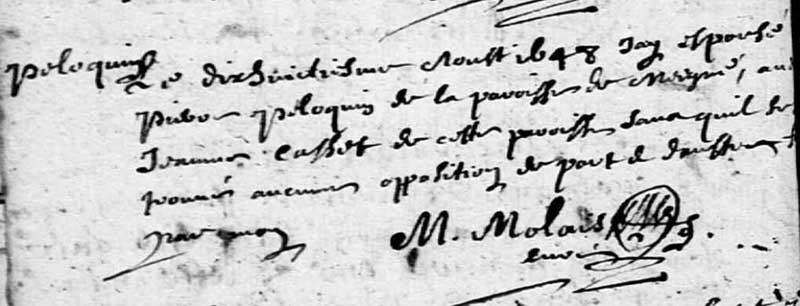 peloquin
Le dixhuictiesme Aoust 1648 Jay espousé
pierre peloquin de la paroisse de Meigné, avec
Jeanne Casset de cette paroisse sans quil se
trouvé aucune opposition de part et daultre
par moy
M. Molais
curé